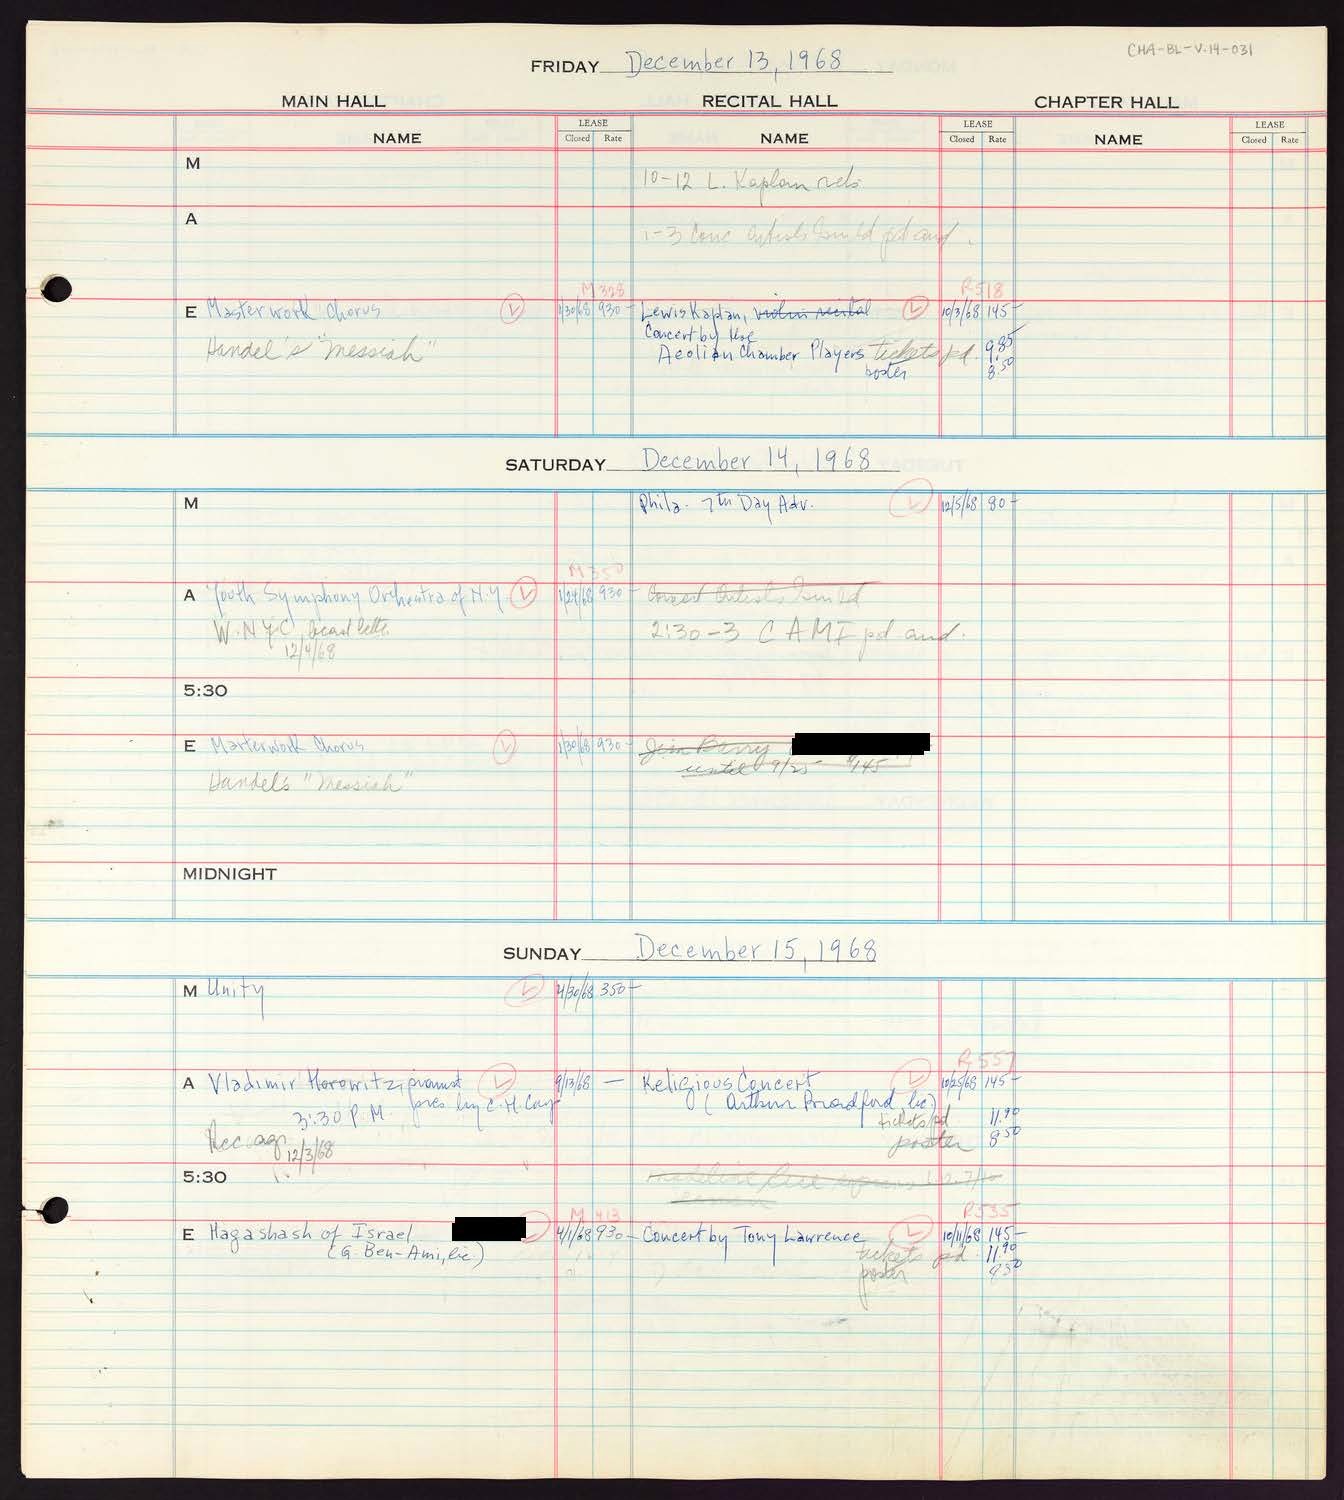 CHA-BL-V.14-031
FRIDAY December 13, 1968
MAIN HALL RECITAL HALL CHAPTER HALL
NAME LEASE Closed Rate NAME LEASE Closed Rate NAME LEASE Closed Rate
M
10-12 L. Kaplan reh.
A
1-3 Conc Artists Guild pd aud.
M 328 R518
E Masterwork Chorus 1/30/68 930- Lewis Kaplan, violin recital 10/3/68 145-
Concert by the
Handel's "Messiah" Aeolian Chamber Players tickets pd. 9.85
poster 8.50
SATURDAY December 14, 1968
M Phila. 7th Day Adv. 12/5/68 80-
M 350
A Youth Symphony Orchestra of N.Y. 1/24/68 930- Concert Artists Guild
W.N.Y.C. bcast letter 2:30-3 CAMI pd aud.
12/4/68
5:30
E Masterwork Chorus 1/30/68 930- Jim Berry
until 9/25 $145
Handel's "Messiah"
MIDNIGHT
SUNDAY December 15, 1968
M Unity 4/30/68 350-
R557
A Vladimir Horowitz, pianist 9/13/68 — Religious Concert 10/25/68 145-
3:30 P.M. pres by C.H. Corp (Arthur Broadford lic)
tickets pd 11.90
Rec agr. 12/3/68 poster 8.50
5:30 Madeline
M 413 R535
E Hagashash of Israel 4/1/68 930- Concert by Tony Lawrence 10/11/68 145-
(G. Ben-Ami, lic.) tickets pd. 11.90
poster 8.50